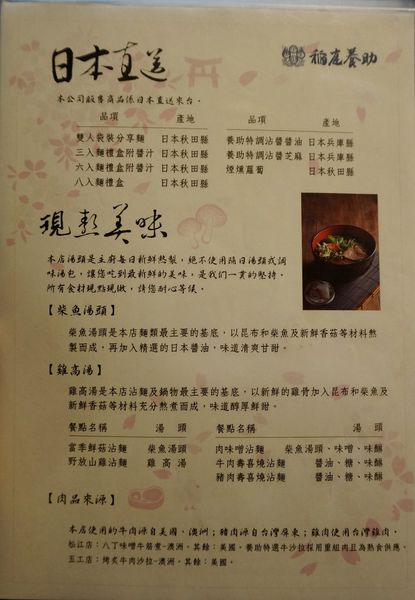 日本直送
稻庭養助
本公司販售商品係日本直送來台。
品項 產地 品項 產地
雙人袋裝分享麵 日本秋田縣 養助特調沾醬醬油 日本兵庫縣
三入麵禮盒附醬汁 日本秋田縣 養助特調沾醬芝麻 日本兵庫縣
六入麵禮盒附醬汁 日本秋田縣 煙燻蘿蔔 日本秋田縣
八入麵禮盒 日本秋田縣
現熬美味
本店湯頭是主廚每日新鮮熬製，絕不使用隔日湯頭或調
味湯包，讓您吃到最新鮮的美味，是我們一貫的堅持。
所有食材現點現做，請您耐心等候。
【柴魚湯頭】
柴魚湯頭是本店麵類最主要的基底，以昆布和柴魚及新鮮香菇等材料熬
製而成，再加入精選的日本醬油，味道清爽甘甜。
【雞高湯】
雞高湯是本店沾麵及鍋物最主要的基底，以新鮮的雞骨加入昆布和柴魚及
新鮮香菇等材料充分熬煮而成，味道醇厚鮮甜。
餐點名稱 湯頭 餐點名稱 湯頭
富季鮮菇沾麵 柴魚湯頭 肉味噌沾麵 柴魚湯頭、味噌、味醂
野放山雞沾麵 雞高湯 牛肉壽喜燒沾麵 醬油、糖、味醂
豬肉壽喜燒沾麵 醬油、糖、味醂
【肉品來源】
本店使用的牛肉源自美國、澳洲；豬肉源自台灣屏東；雞肉使用台灣雞肉。
松江店：八丁味噌牛筋煮-澳洲。其餘：美國。養助特選牛沙拉採用重組肉且為熟食供應。
五工店：烤炙牛肉沙拉-澳洲。其餘：美國。